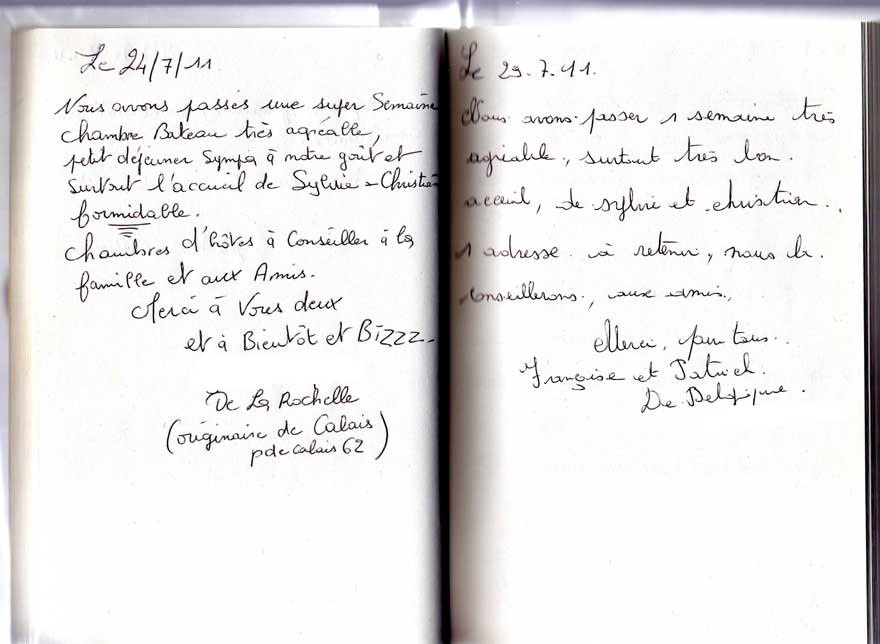 Le 24/7/11
Nous avons passés une super Semaine
chambre Bateau très agréable,
petit déjeuner Sympa à notre goût et
surtout l'accueil de Sylvie - Christian
formidable.
chambres d'hôtes à Conseiller à la
famille et aux Amis.
Merci à Vous deux
et à Bientôt et BIZZZ.
De La Rochelle
(originaire de Calais
pde calais 62)
Le 29.7.11.
Nous avons passer 1 semaine très
agréable, surtout très bon.
acceuil, de sylvie et christian..
1 adresse à retenir, nous la.
conseillerons, aux amis,
Merci, pour tous..
Françoise et Patrick.
De Belgique.